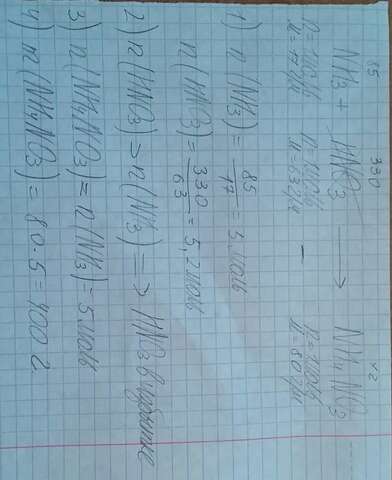 85 330 x г
NH₃ + HNO₃ ⟶ NH₄NO₃
n=1 моль n=1 моль – n=1 моль
M=17 г/м M=63 г/м M=80 г/м
1) n (NH₃) = 85/17 = 5 моль
n (HNO₃) = 330/63 = 5,2 моль
2) n(HNO₃) > n(NH₃) ⇒ HNO₃ в избытке
3) n(NH₄NO₃) = n(NH₃) = 5 моль
4) m(NH₄NO₃) = 80·5 = 400 г